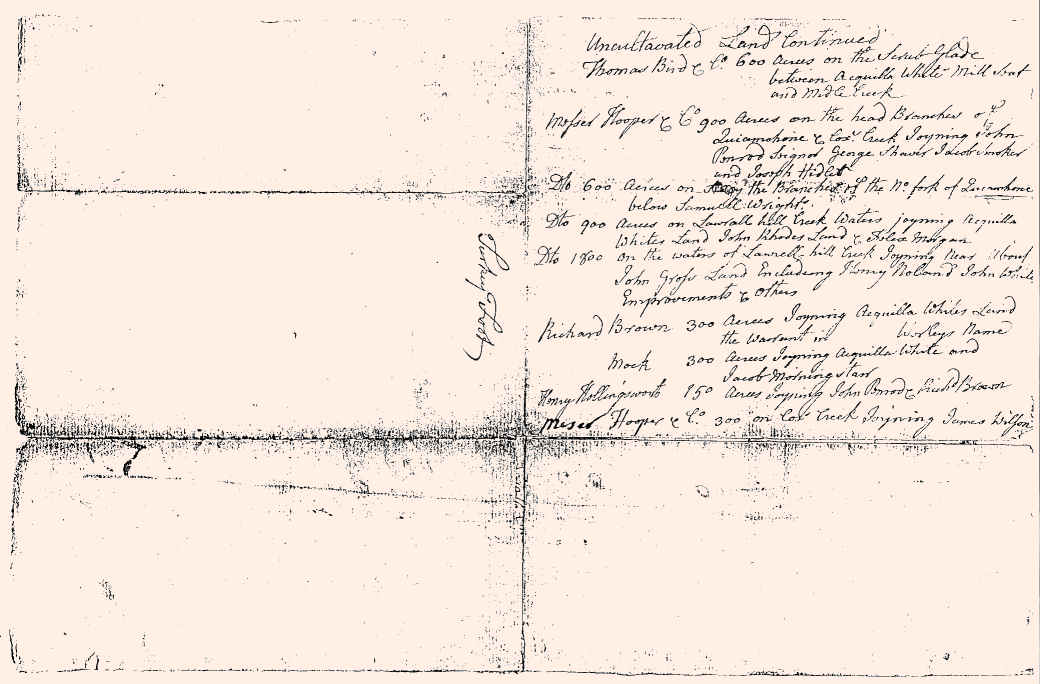 Uncultavated Land Continued
Thomas Bird & Co 600 Acres on the Scrub Glade
between Acquilla White Mill Seat
and Midle Creek
Messer Hooper & Co 900 Acres on the head Branches of ye
Quicmohone & Coxs Creek Joyning John
Penrod Seignor George Shaver Jacob Smoker
and Joseph
Dto 600 Acres on the Branches of the No fork of
below Samuell Wrights
Dto 900 Acres on Lawrall hill Creek Waters joyning Acquilla
Whites Land John Rhodes Land & Morgan
Dto 1800 on the waters of Lawrell-hill Creek Joyning Near
John Gross Land Encludeing Henry Noland John White
Emprovements & Others
Richard Brown 300 Acres Joyning Acquilla Whites Land
the Warrent in Worleys Name
Mock 300 Acres Joyning Acquilla White and
Jacob Morningstarr
Henry Hollingsworth 150 Acres Joyning John Penrod & Richd Brown
Messer Hooper & Co. 300 on Cox Creek Joyning James Wilson
Turkey Foot